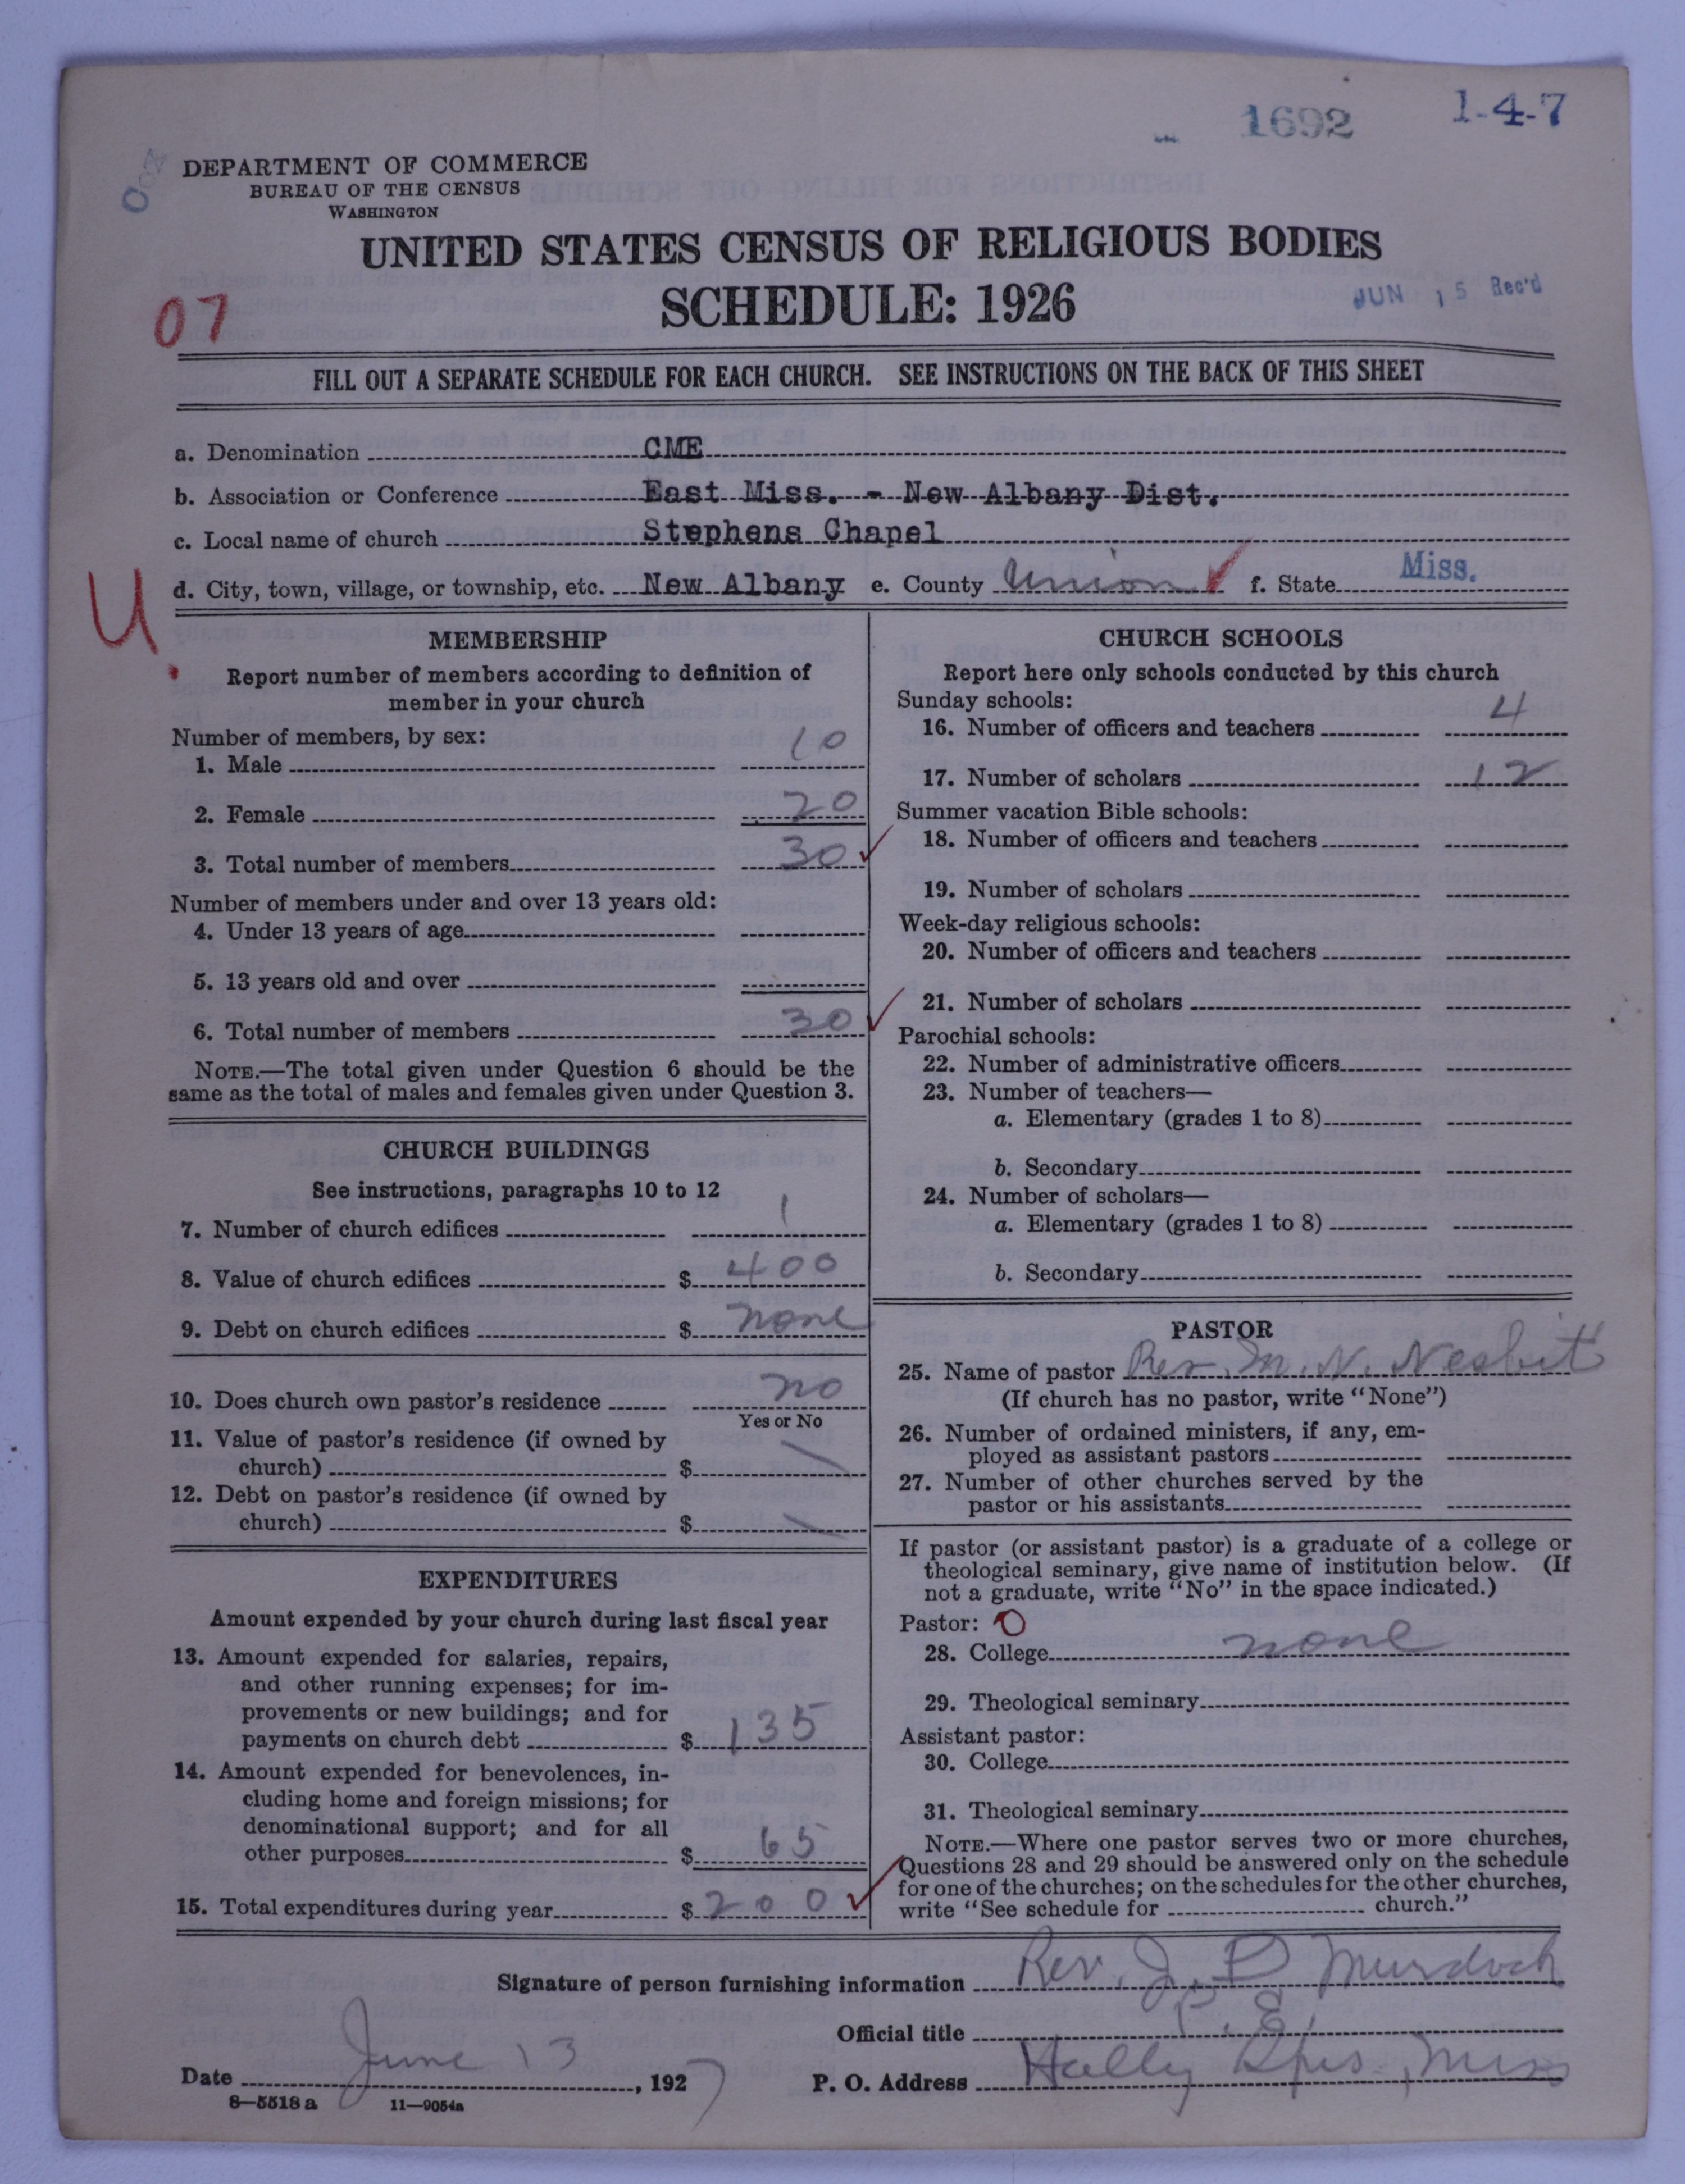 1692 1-4-7
DEPARTMENT OF COMMERCE
BUREAU OF THE CENSUS
WASHINGTON
UNITED STATES CENSUS OF RELIGIOUS BODIES
SCHEDULE: 1926
JUN 15 Rec'd
07
FILL OUT A SEPARATE SCHEDULE FOR EACH CHURCH. SEE INSTRUCTIONS ON THE BACK OF THIS SHEET
a. Denomination CME
b. Association or Conference East Miss. - New Albany Dist.
c. Local name of church Stephens Chapel
d. City, town, village, or township, etc. New Albany e. County Union f. State Miss.
U.
MEMBERSHIP
Report number of members according to definition of
member in your church
Number of members, by sex:
1. Male 10
2. Female 20
3. Total number of members 30
Number of members under and over 13 years old:
4. Under 13 years of age
5. 13 years old and over
6. Total number of members 30
NOTE.—The total given under Question 6 should be the
same as the total of males and females given under Question 3.
CHURCH BUILDINGS
See instructions, paragraphs 10 to 12
7. Number of church edifices 1
8. Value of church edifices $ 400
9. Debt on church edifices $ none
10. Does church own pastor's residence no
Yes or No
11. Value of pastor's residence (if owned by
church) $
12. Debt on pastor's residence (if owned by
church) $
EXPENDITURES
Amount expended by your church during last fiscal year
13. Amount expended for salaries, repairs,
and other running expenses; for im-
provements or new buildings; and for
payments on church debt $ 135
14. Amount expended for benevolences, in-
cluding home and foreign missions; for
denominational support; and for all
other purposes $ 65
15. Total expenditures during year $ 200
CHURCH SCHOOLS
Report here only schools conducted by this church
Sunday schools:
16. Number of officers and teachers 4
17. Number of scholars 12
Summer vacation Bible schools:
18. Number of officers and teachers
19. Number of scholars
Week-day religious schools:
20. Number of officers and teachers
21. Number of scholars
Parochial schools:
22. Number of administrative officers
23. Number of teachers—
a. Elementary (grades 1 to 8)
b. Secondary
24. Number of scholars—
a. Elementary (grades 1 to 8)
b. Secondary
PASTOR
25. Name of pastor Rev. M. N. Nesbit
(If church has no pastor, write "None")
26. Number of ordained ministers, if any, em-
ployed as assistant pastors
27. Number of other churches served by the
pastor or his assistants
If pastor (or assistant pastor) is a graduate of a college or
theological seminary, give name of institution below. (If
not a graduate, write "No" in the space indicated.)
Pastor: O
28. College none
29. Theological seminary
Assistant pastor:
30. College
31. Theological seminary
NOTE.—Where one pastor serves two or more churches,
Questions 28 and 29 should be answered only on the schedule
for one of the churches; on the schedules for the other churches,
write "See schedule for church."
Signature of person furnishing information Rev. J. P. Murdock
Official title P. E.
Date June 13, 1927 P. O. Address Holly Spgs., Miss
8—5518 a 11—9054a